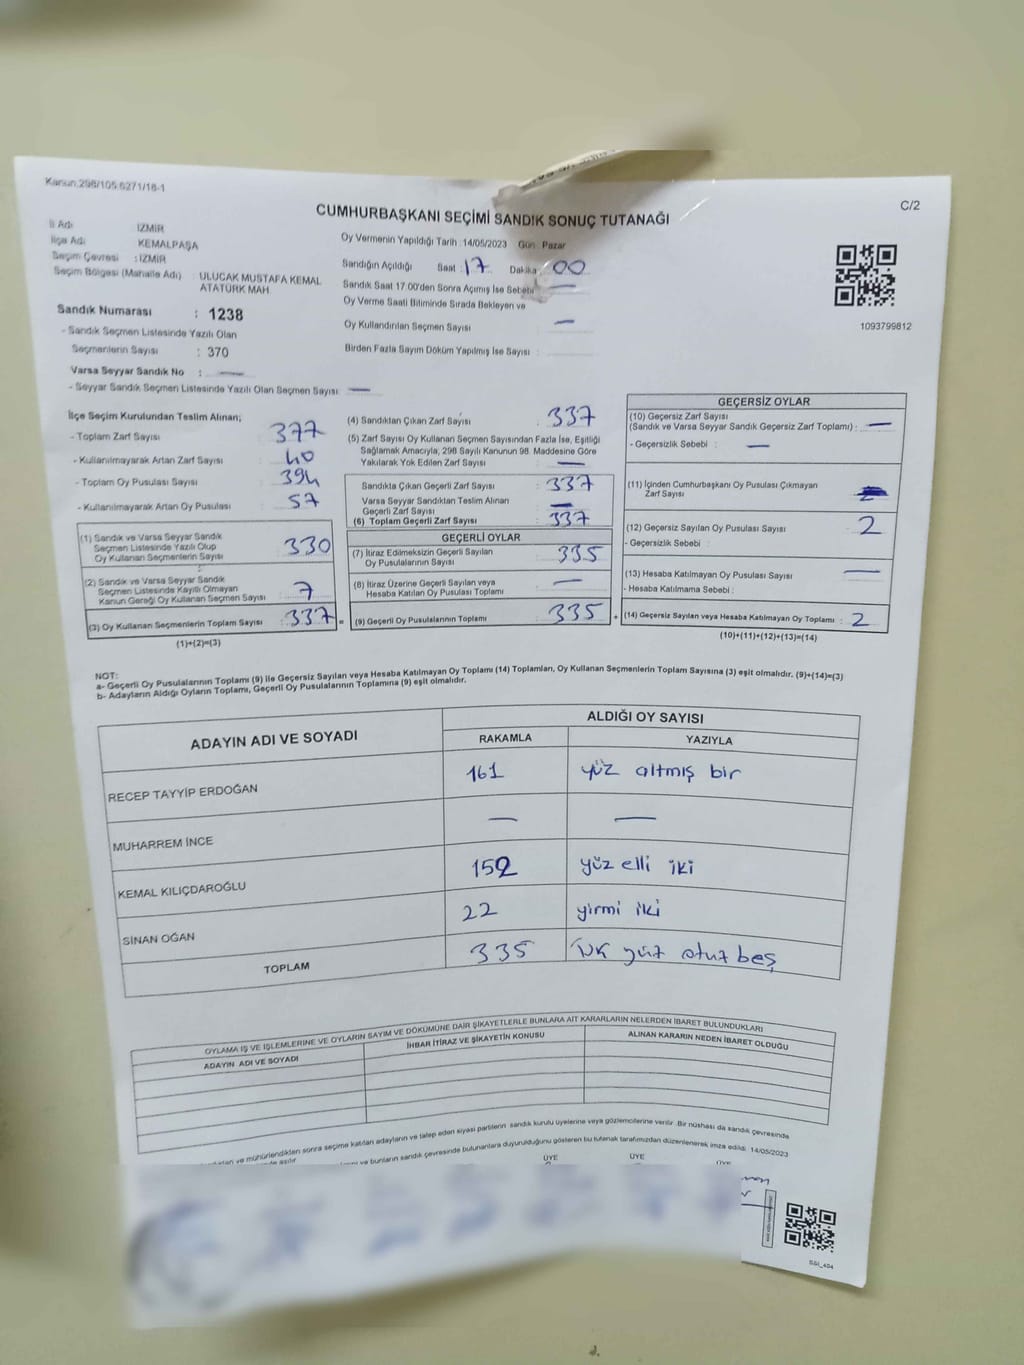 Kanun.298/105.6271/18-1
C/2
CUMHURBAŞKANI SEÇİMİ SANDIK SONUÇ TUTANAĞI
İl Adı : İZMİR
İlçe Adı : KEMALPAŞA
Seçim Çevresi : İZMİR
Seçim Bölgesi (Mahalle Adı) : ULUCAK MUSTAFA KEMAL
ATATÜRK MAH.
Sandık Numarası : 1238
- Sandık Seçmen Listesinde Yazılı Olan
Seçmenlerin Sayısı : 370
Varsa Seyyar Sandık No : —
- Seyyar Sandık Seçmen Listesinde Yazılı Olan Seçmen Sayısı : —
Oy Vermenin Yapıldığı Tarih : 14/05/2023 Gün : Pazar
Sandığın Açıldığı Saat : 17 Dakika : 00
Sandık Saat 17.00'den Sonra Açımış İse Sebebi —
Oy Verme Saati Bitiminde Sırada Bekleyen ve
Oy Kullandırılan Seçmen Sayısı : —
Birden Fazla Sayım Döküm Yapılmış İse Sayısı :
1093799812
İlçe Seçim Kurulundan Teslim Alınan;
- Toplam Zarf Sayısı : 377
- Kullanılmayarak Artan Zarf Sayısı : 40
- Toplam Oy Pusulası Sayısı : 394
- Kullanılmayarak Artan Oy Pusulası : 57
(1) Sandık ve Varsa Seyyar Sandık
Seçmen Listesinde Yazılı Olup
Oy Kullanan Seçmenlerin Sayısı : 330
(2) Sandık ve Varsa Seyyar Sandık
Seçmen Listesinde Kayıtlı Olmayan
Kanun Gereği Oy Kullanan Seçmen Sayısı : 7
(3) Oy Kullanan Seçmenlerin Toplam Sayısı : 337 =
(1)+(2)=(3)
(4) Sandıktan Çıkan Zarf Sayısı : 337
(5) Zarf Sayısı Oy Kullanan Seçmen Sayısından Fazla İse, Eşitliği
Sağlamak Amacıyla, 298 Sayılı Kanunun 98. Maddesine Göre
Yakılarak Yok Edilen Zarf Sayısı : —
Sandıkta Çıkan Geçerli Zarf Sayısı : 337
Varsa Seyyar Sandıktan Teslim Alınan
Geçerli Zarf Sayısı : —
(6) Toplam Geçerli Zarf Sayısı : 337
GEÇERLİ OYLAR
(7) İtiraz Edilmeksizin Geçerli Sayılan
Oy Pusulalarının Sayısı : 335
(8) İtiraz Üzerine Geçerli Sayılan veya
Hesaba Katılan Oy Pusulası Toplamı : —
(9) Geçerli Oy Pusulalarının Toplamı : 335 +
GEÇERSİZ OYLAR
(10) Geçersiz Zarf Sayısı
(Sandık ve Varsa Seyyar Sandık Geçersiz Zarf Toplamı) : —
- Geçersizlik Sebebi : —
(11) İçinden Cumhurbaşkanı Oy Pusulası Çıkmayan
Zarf Sayısı
(12) Geçersiz Sayılan Oy Pusulası Sayısı : 2
- Geçersizlik Sebebi :
(13) Hesaba Katılmayan Oy Pusulası Sayısı : —
- Hesaba Katılmama Sebebi :
(14) Geçersiz Sayılan veya Hesaba Katılmayan Oy Toplamı : 2
(10)+(11)+(12)+(13)=(14)
NOT:
a- Geçerli Oy Pusulalarının Toplamı (9) ile Geçersiz Sayılan veya Hesaba Katılmayan Oy Toplamı (14) Toplamları, Oy Kullanan Seçmenlerin Toplam Sayısına (3) eşit olmalıdır. (9)+(14)=(3)
b- Adayların Aldığı Oyların Toplamı, Geçerli Oy Pusulalarının Toplamına (9) eşit olmalıdır.
ADAYIN ADI VE SOYADI
ALDIĞI OY SAYISI
RAKAMLA YAZIYLA
RECEP TAYYİP ERDOĞAN 161 yüz altmış bir
MUHARREM İNCE — —
KEMAL KILIÇDAROĞLU 152 yüz elli iki
SİNAN OĞAN 22 yirmi iki
TOPLAM 335 üç yüz otuz beş
OYLAMA İŞ VE İŞLEMLERİNE VE OYLARIN SAYIM VE DÖKÜMÜNE DAİR ŞİKAYETLERLE BUNLARA AİT KARARLARIN NELERDEN İBARET BULUNDUKLARI
ADAYIN ADI VE SOYADI
İHBAR İTİRAZ VE ŞİKAYETİN KONUSU
ALINAN KARARIN NEDEN İBARET OLDUĞU
ve mühürlendikten sonra seçime katılan adayların ve talep eden siyasi partilerin sandık kurulu üyelerine veya gözlemcilerine verilir. Bir nüshası da sandık çevresinde
ve bunların sandık çevresinde bulunanlara duyurulduğunu gösteren bu tutanak tarafımızdan düzenlenerek imza edildi. 14/05/2023
ÜYE ÜYE ÜYE